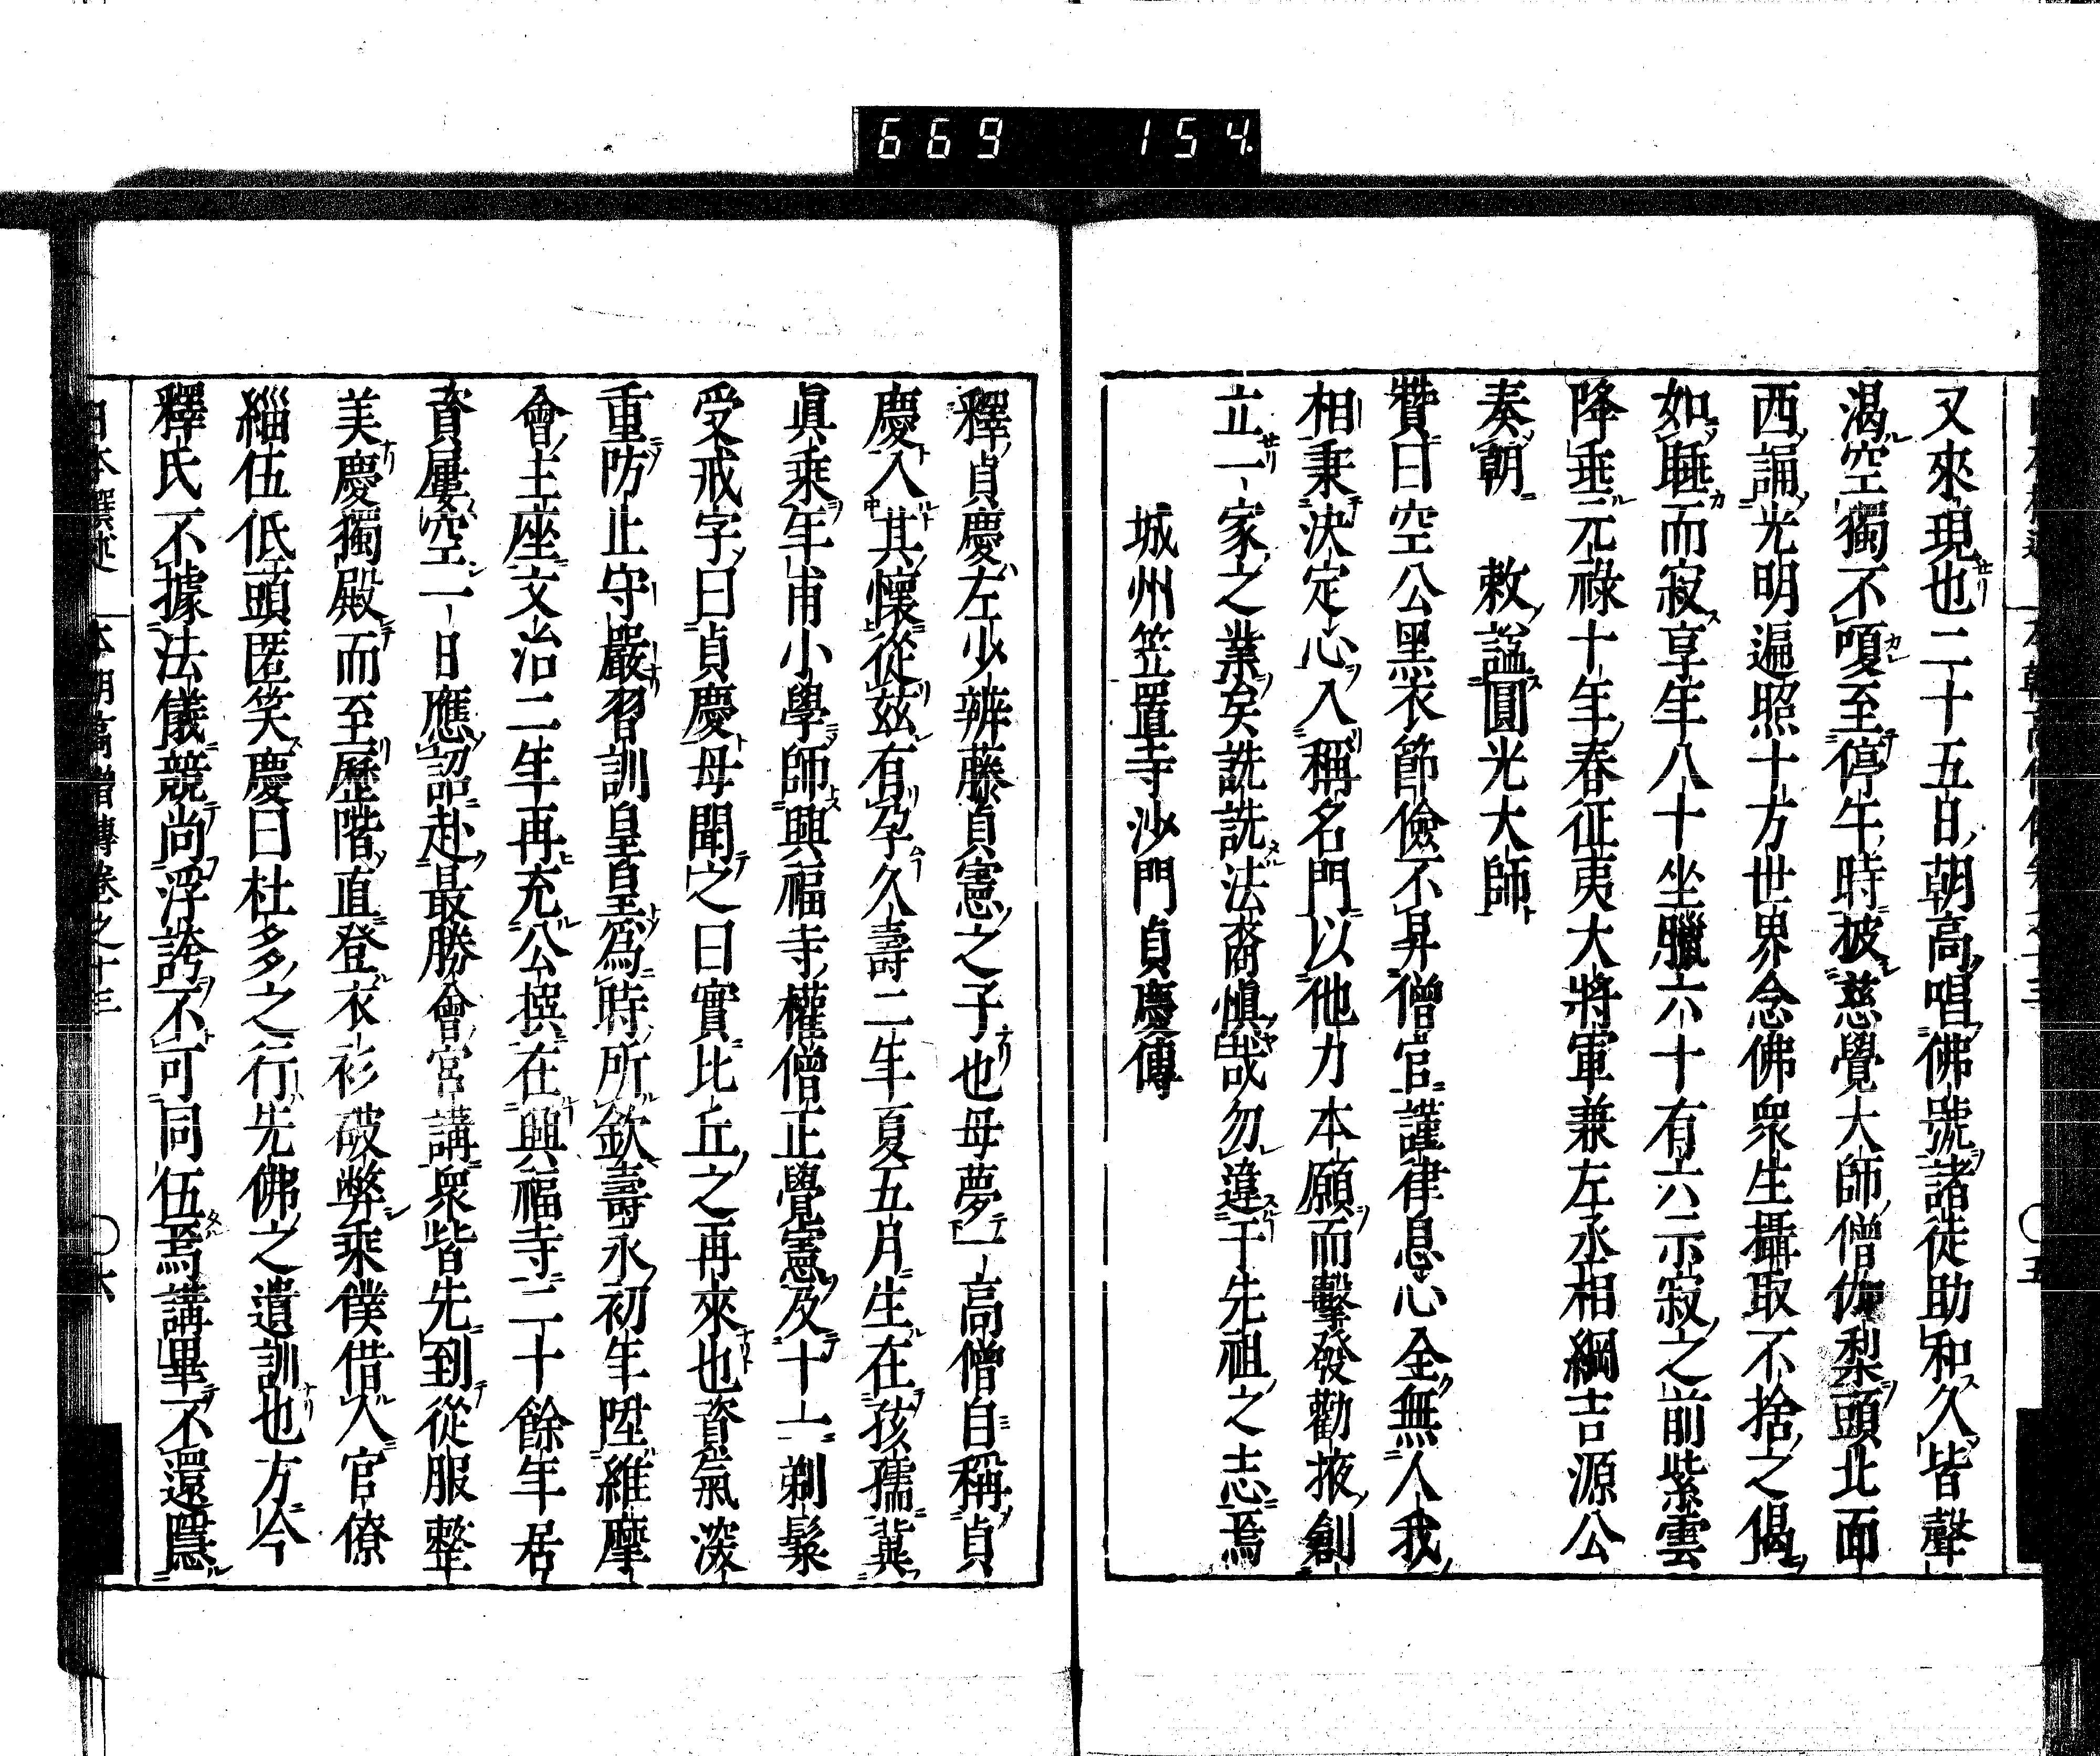 669 154
又來現也二十五日朝高唱佛號諸徒助和久皆聲
渴空獨不嗄至停午時披慈覺大師僧伽梨頭北面
西誦光明遍照十方世界念佛眾生攝取不捨之偈
如睡而寂享年八十坐臘六十有六示寂之前紫雲
降垂元祿十年春征夷大將軍兼左丞相綱吉源公
奏朝 敕謚圓光大師
贊曰空公黑衣節儉不昇僧官謹律息心全無人我
相秉決定心入稱名門以他力本願而擊發勸掖創
立一家之業矣詵詵法裔慎哉勿違于先祖之志焉
城州笠置寺沙門貞慶傳
釋貞慶左少辨藤貞憲之子也母夢一高僧自稱貞
慶入其懷從茲有孕久壽二年夏五月生在孩孺冀
眞乘年甫小學師興福寺權僧正覺憲及十一剃髮
受戒字曰貞慶母聞之曰實比丘之再來也資氣深
重防止守嚴習訓皇皇爲時所欽壽永初年陞維摩
會主座文治二年再充公撰在興福寺二十餘年居
資屢空一日應詔赴最勝會宮講眾皆先到從服整
美慶獨殿而至歷階直登衣衫破弊乘僕借人官僚
緇伍低頭匿笑慶曰杜多之行先佛之遺訓也方今
釋氏不據法儀競尚浮誇不可同伍焉講畢不還隱
日本撰述 本朝高僧傳卷之十三 〇六